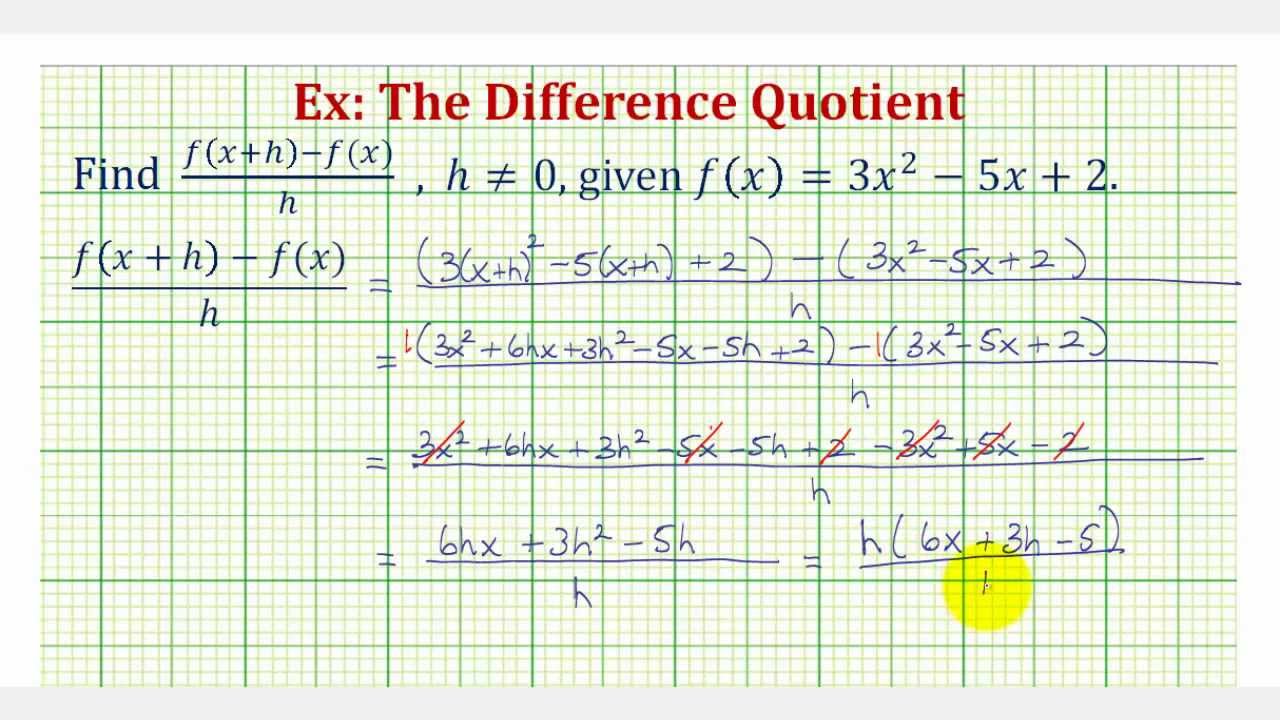 Ex: The Difference Quotient
Find \frac{f(x+h)-f(x)}{h} , h ≠ 0, given f(x) = 3x² − 5x + 2.
\frac{f(x+h)-f(x)}{h} = \frac{(3(x+h)² −5(x+h) +2) − (3x²−5x+2)}{h}
= \frac{1(3x²+6hx+3h²−5x−5h+2) −1(3x²−5x+2)}{h}
= \frac{3x²+6hx+3h²−5x−5h+2−3x²+5x−2}{h}
= \frac{6hx+3h²−5h}{h} = \frac{h(6x+3h−5)}{}